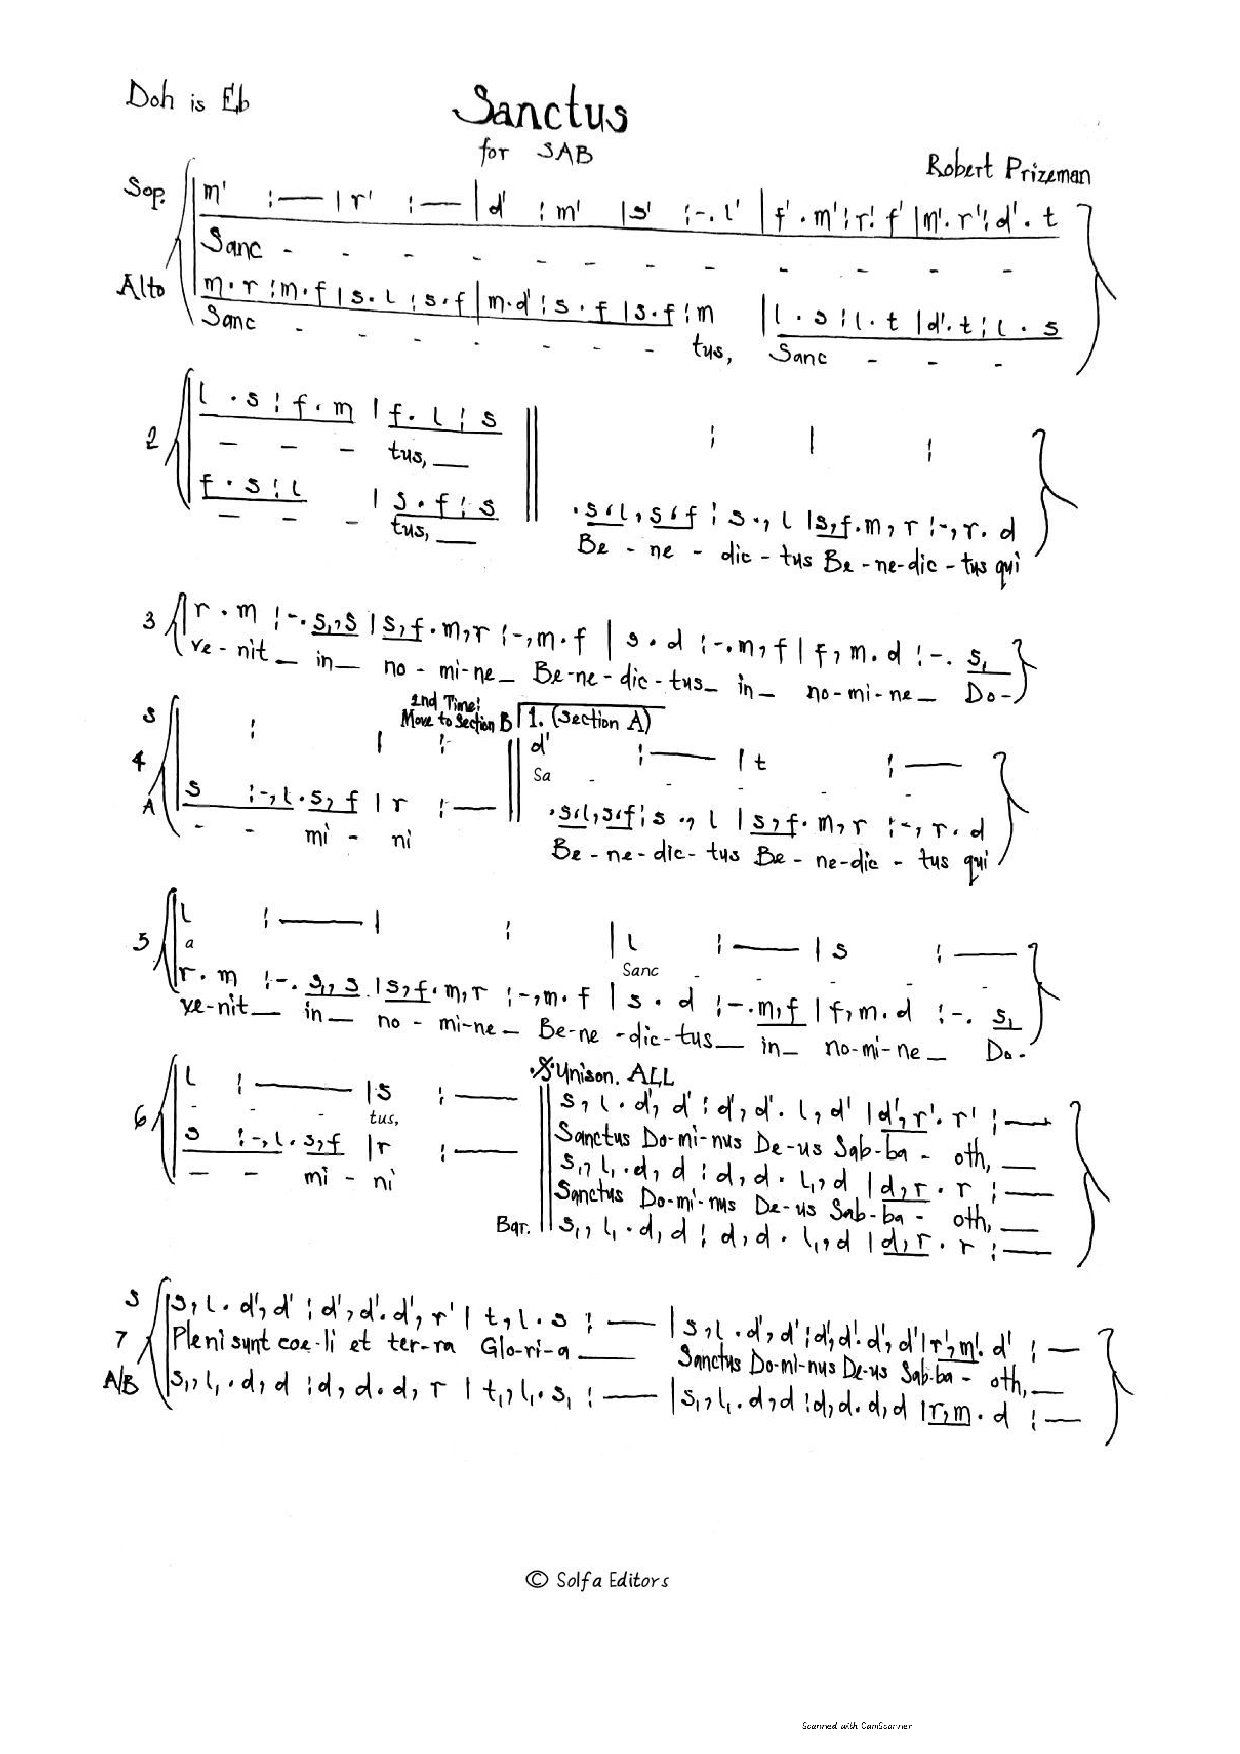 Doh is Eb
Sanctus
for SAB
Robert Prizeman
Sop. m' :— | r' :— | d' : m' | s' :-. l' | f' . m' : r' . f' | m' . r' : d' . t
Sanc - - - - - - - - - - -
Alto m . r : m . f | s . l : s . f | m . d' : s . f | s . f : m | l . s : l . t | d' . t : l . s
Sanc - - - - - - tus, Sanc - - -
2 l . s : f . m | f . l : s || : | :
- - - tus, __
f . s : l | s . f : s || . s , l , s , f : s . , l | s , f . m , r : - , r . d
- - - tus, __ Be - ne - dic - tus Be - ne-dic - tus qui
3 r . m : - . s, , s | s , f . m , r : - , m . f | s . d : - . m , f | f , m . d : - . s,
ve - nit __ in __ no - mi - ne __ Be-ne-dic-tus __ in __ no-mi-ne __ Do -
2nd Time!
Move to Section B 1. (Section A)
S : | : || d' :— | t :—
4 Sa - - - - -
A s : - , l . s , f | r :— || . s , l , s , f : s . , l | s , f . m , r : - , r . d
- - mi - ni Be - ne - dic - tus Be - ne-dic - tus qui
5 l :— | : | l :— | s :—
a Sanc - - - - -
r . m : - . s, , s | s , f . m , r : - , m . f | s . d : - . m , f | f , m . d : - . s,
ve-nit __ in __ no - mi-ne __ Be-ne -dic-tus __ in __ no-mi-ne __ Do -
Unison. ALL
6 l :— | s :— || s , l . d' , d' : d' , d' . l , d' | d' , r' . r' :—
- - - tus, Sanctus Do-mi-nus De-us Sab-ba - oth, __
s : - , l . s , f | r :— || s, , l, . d , d : d , d . l, , d | d , r . r :—
- - mi - ni Sanctus Do-mi-nus De-us Sab-ba - oth, __
Bar. s, , l, . d , d : d , d . l, , d | d , r . r :—
S s , l . d' , d' : d' , d' . d' , r' | t , l . s :— | s , l . d' , d' : d' , d' . d' , d' | r' , m' . d' :—
7 Pleni sunt coe-li et ter-ra Glo-ri-a __ Sanctus Do-mi-nus De-us Sab-ba - oth, __
A/B s, , l, . d , d : d , d . d , r | t, , l, . s, :— | s, , l, . d , d : d , d . d , d | r , m . d :—
© Solfa Editors
Scanned with CamScanner